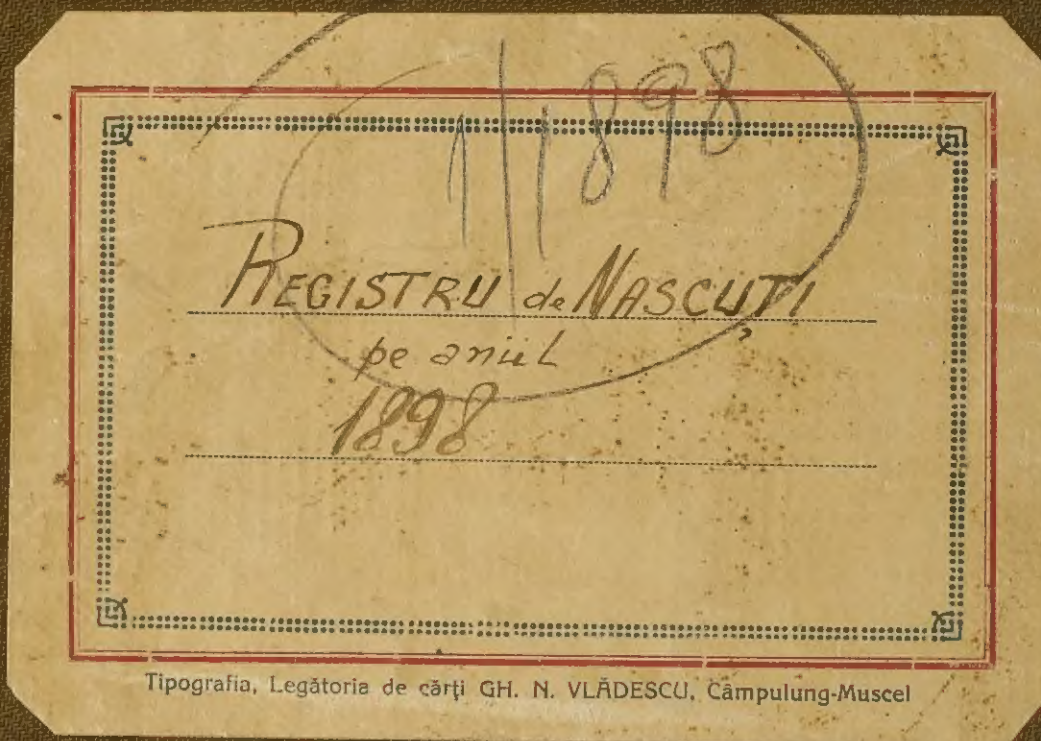 1/1898
REGISTRU de NASCUȚI
pe aniul
1898
Tipografia, Legătoria de cărți GH. N. VLĂDESCU, Câmpulung-Muscel